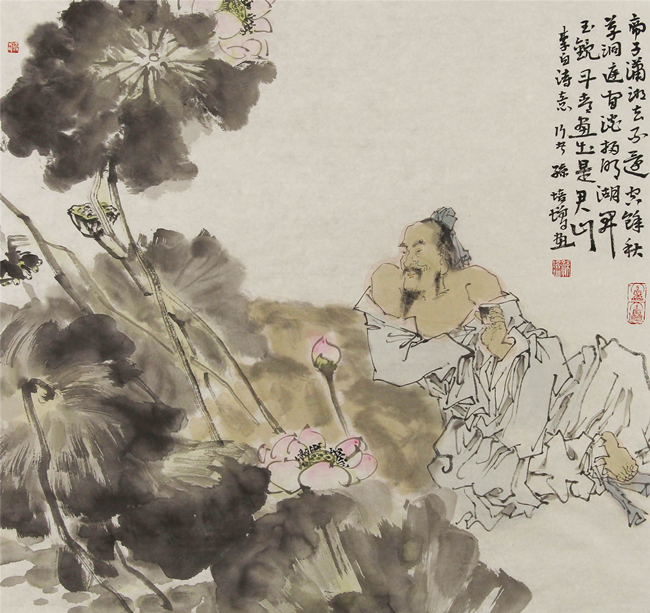 帝子瀟湘去不還空餘秋
草洞庭间淡扫明湖开
玉鏡丹青画出是君山
李白诗意 孫培增画